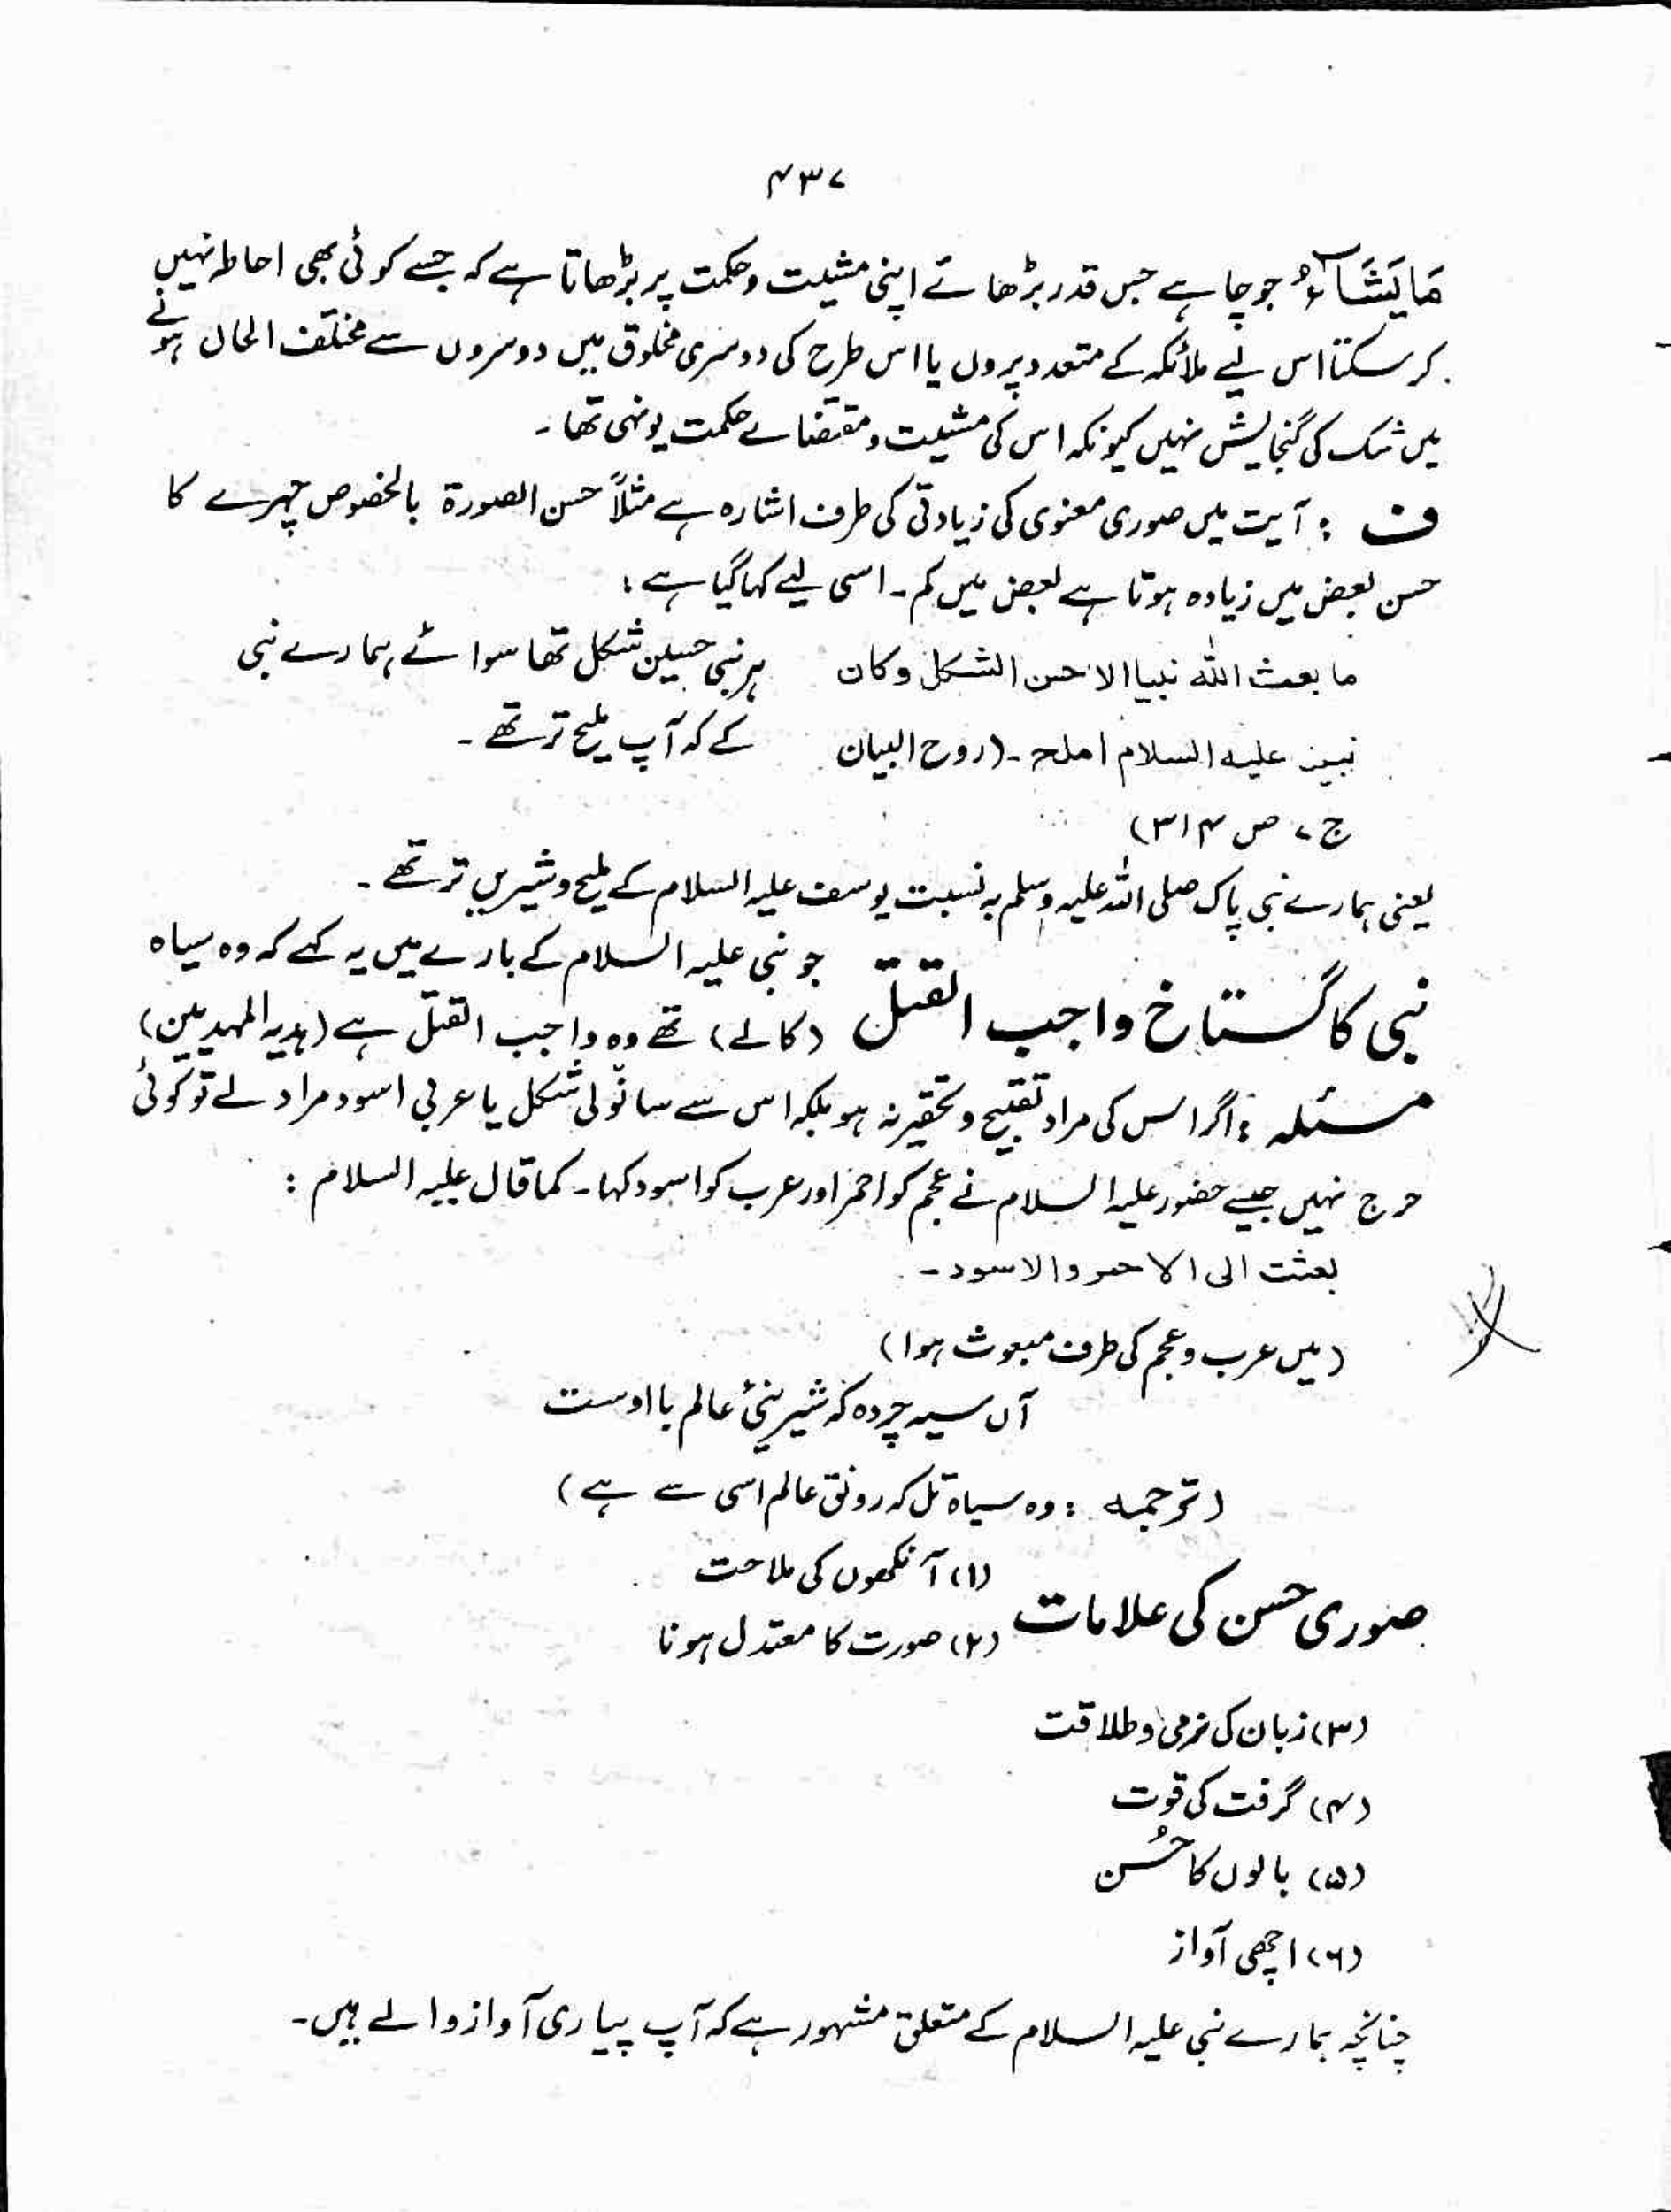 ۴۳۷
مَا یَشَآءُ جو چاہے جس قدر بڑھائے اپنی مشیت و حکمت پر بڑھاتا ہے کہ جسے کوئی بھی احاطہ نہیں
کرسکتا اس لیے ملائکہ کے متعدد پروں یا اس طرح کی دوسری مخلوق میں دوسروں سے مختلف الحال ہونے
میں شک کی گنجایش نہیں کیونکہ اس کی مشیت و مقتضائے حکمت یونہی تھا۔
ف : آیت میں صوری معنوی کی زیادتی کی طرف اشارہ ہے مثلاً حسن الصورۃ بالخصوص چہرے کا
حسن بعض میں زیادہ ہوتا ہے بعض میں کم۔ اسی لیے کہا گیا ہے :
ما بعث الله نبیا الا حسن الشکل وکان
نبینا علیه السلام املح ۔ (روح البیان
ج ۷ ص ۳۱۴)
ہر نبی حسین شکل تھا سوائے ہمارے نبی
کے کہ آپ ملیح تر تھے ۔
یعنی ہمارے نبی پاک صلی اللہ علیہ وسلم بہ نسبت یوسف علیہ السلام کے ملیح و شیریں تر تھے ۔
نبی کا گستاخ واجب القتل
جو نبی علیہ السلام کے بارے میں یہ کہے کہ وہ سیاہ
(کالے) تھے وہ واجب القتل ہے (ہدیۃ المہدیین)
مسئلہ : اگر اس کی مراد تقبیح و تحقیر نہ ہو بلکہ اس سے سانولی شکل یا عربی اسود مراد لے تو کوئی
حرج نہیں جیسے حضور علیہ السلام نے عجم کو احمر اور عرب کو اسود کہا۔ کما قال علیہ السلام :
بعثت الی الاحمر والاسود ۔
(میں عرب و عجم کی طرف مبعوث ہوا)
آں سیہ چردہ کہ شیرینیٔ عالم با اوست
(ترجمہ : وہ سیاہ تل کہ رونق عالم اسی سے ہے)
صوری حسن کی علامات
(۱) آنکھوں کی ملاحت
(۲) صورت کا معتدل ہونا
(۳) زبان کی نرمی و طلاقت
(۴) گرفت کی قوت
(۵) بالوں کا حُسن
(۶) اچھی آواز
چنانچہ ہمارے نبی علیہ السلام کے متعلق مشہور ہے کہ آپ پیاری آواز والے ہیں۔